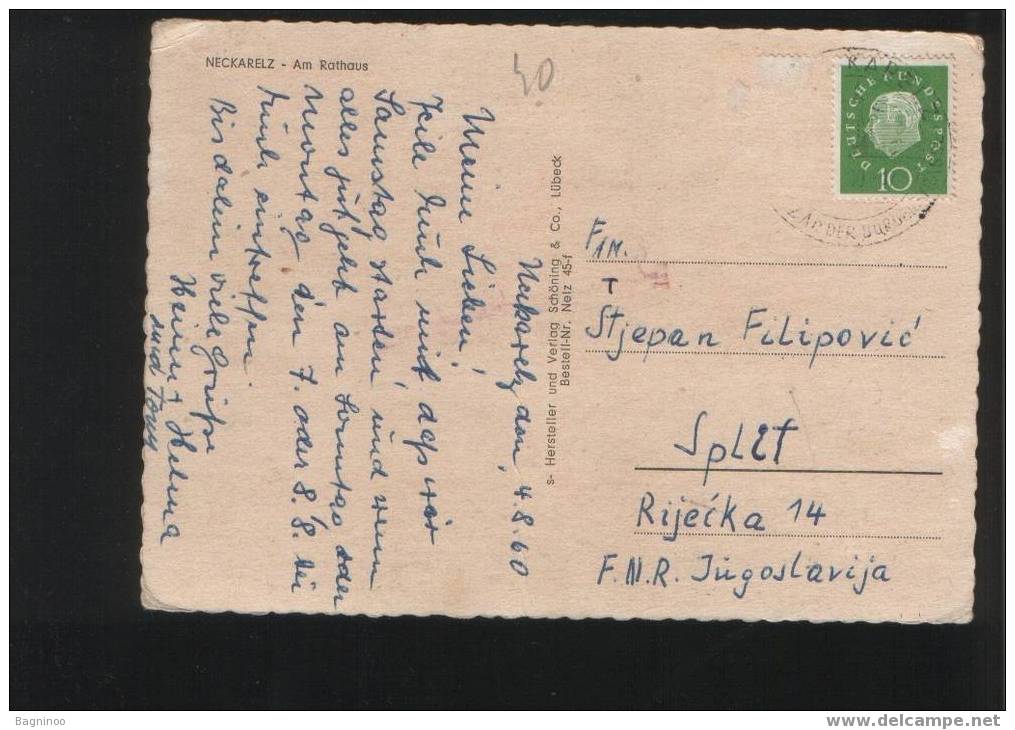 NECKARELZ - Am Rathaus
40
DEUTSCHE BUNDESPOST
10
s- Hersteller und Verlag Schöning & Co., Lübeck
Bestell-Nr. Netz 45-f
Neckarelz, den, 4.8.60
Meine Lieben!
Teile Euch mit dass wir
Samstag starten und wenn
alles gut geht am Sonntag oder
Montag den 7. oder 8.8. bei
Euch eintreffen.
Bis dahin viele Grüße
Heini, Helma
und Tony
Fam.
T
Stjepan Filipović
Split
Riječka 14
F.N.R. Jugoslavija
Bagninoo
www.delcampe.net